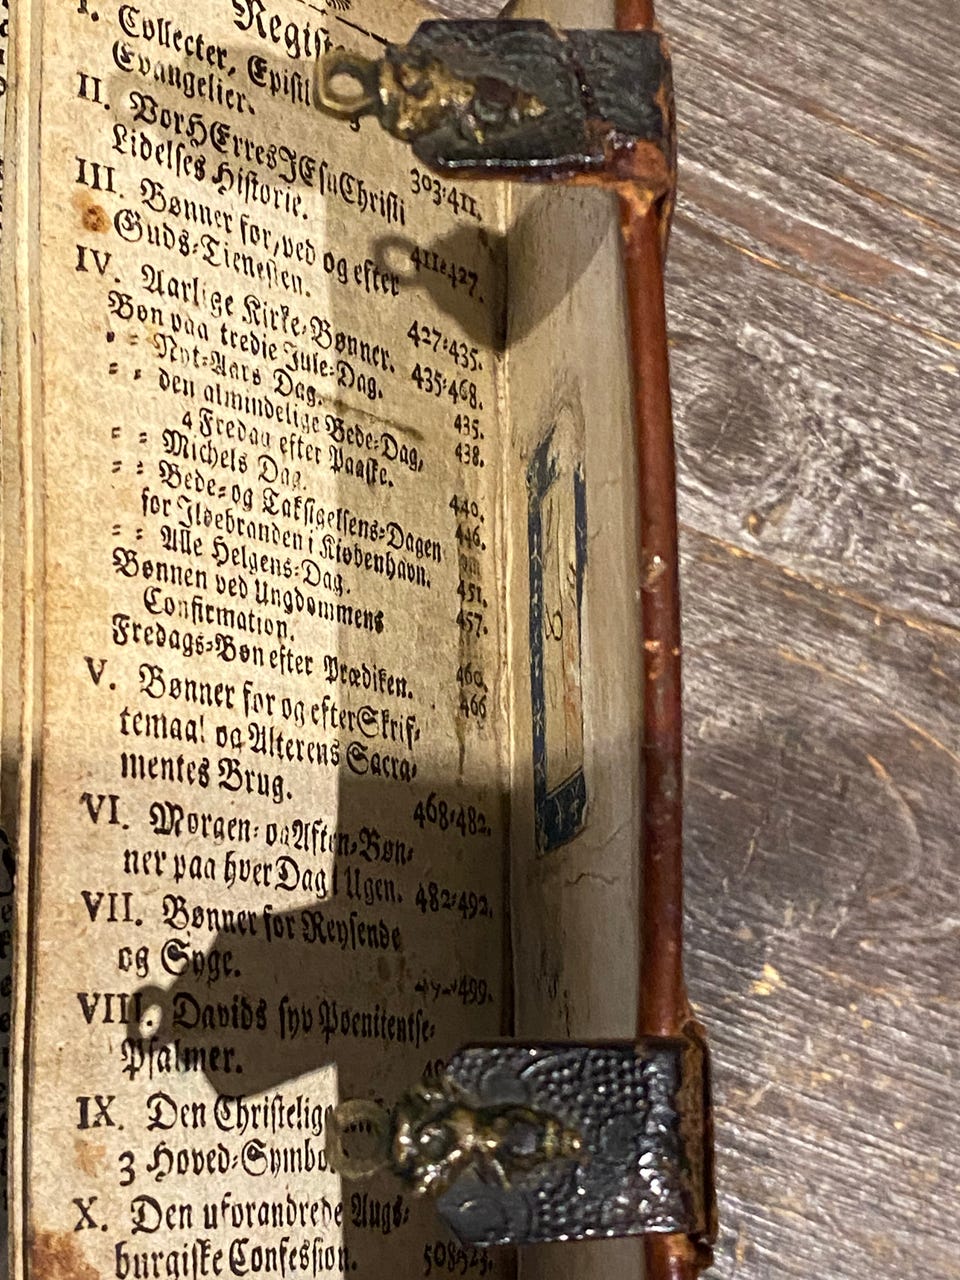 Regist
I. Collecter, Epistl
Evangelier.
303⸗411.
II. VorHErresJEsuChristi
Lidelses Historie.
411⸗427.
III. Bønner for, ved og efter
Guds⸗Tienesten.
427⸗435.
IV. Aarlige Kirke⸗Bønner. 435⸗468.
Bøn paa tredie Jule⸗Dag. 435.
⸗ ⸗ Nyt⸗Aars Dag. 438.
⸗ ⸗ den almindelige Bede⸗Dag,
4 Fredag efter Paaske. 440.
⸗ ⸗ Michels Dag. 446.
⸗ ⸗ Bede⸗og Taksigelsens⸗Dagen
for Ildebranden i Kiøbenhavn. 451.
⸗ ⸗ Alle Helgens⸗Dag. 457.
Bønnen ved Ungdommens
Confirmation. 460.
Fredags⸗Bøn efter Prædiken. 466
V. Bønner for og efter Skrif⸗
temaal og Alterens Sacra⸗
mentes Brug. 468⸗482.
VI. Morgen⸗ og Aften⸗Bøn⸗
ner paa hver Dag i Ugen. 482⸗492.
VII. Bønner for Reysende
og Syge. 499.
VIII. Davids syv Poenitentse⸗
Psalmer.
IX. Den Christelige
3 Hoved⸗Symbo
X. Den uforandrede Augs⸗
burgiske Confession.